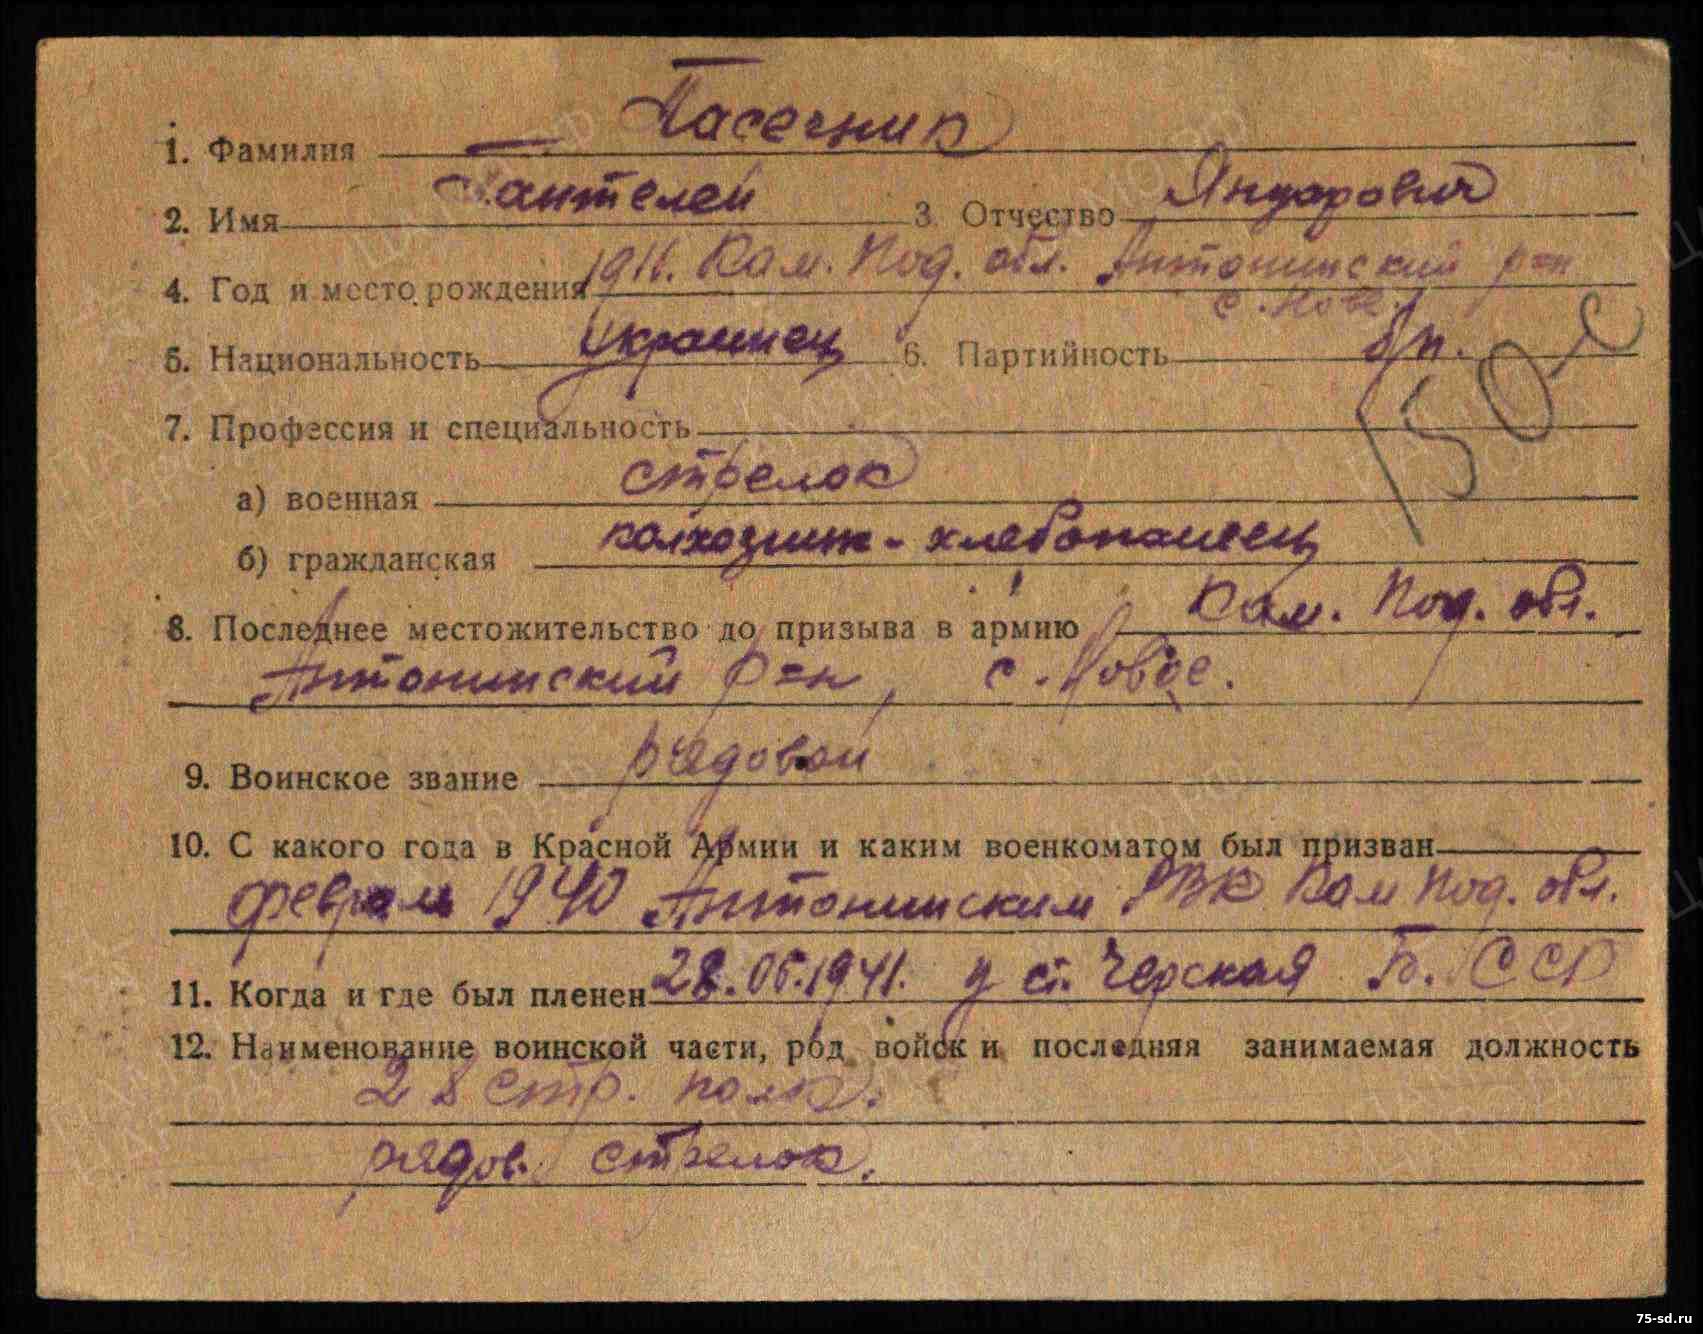 1. Фамилия Пасечник
2. Имя Пантелей 3. Отчество Януарович
4. Год и место рождения 1911. Кам. Под. обл. Антонинский р=н
с. Новое
5. Национальность Украинец 6. Партийность б/п.
7. Профессия и специальность
а) военная стрелок
б) гражданская колхозник - хлебопашец
8. Последнее местожительство до призыва в армию Кам. Под. обл.
Антонинский р=н, с. Новое.
9. Воинское звание рядовой
10. С какого года в Красной Армии и каким военкоматом был призван
февраль 1940 Антонинским РВК Кам Под. обл.
11. Когда и где был пленен 28.06.1941. у ст. Черская Б. ССР
12. Наименование воинской части, род войск и последняя занимаемая должность
28 стр. полк.
рядов. стрелок.
75-sd.ru